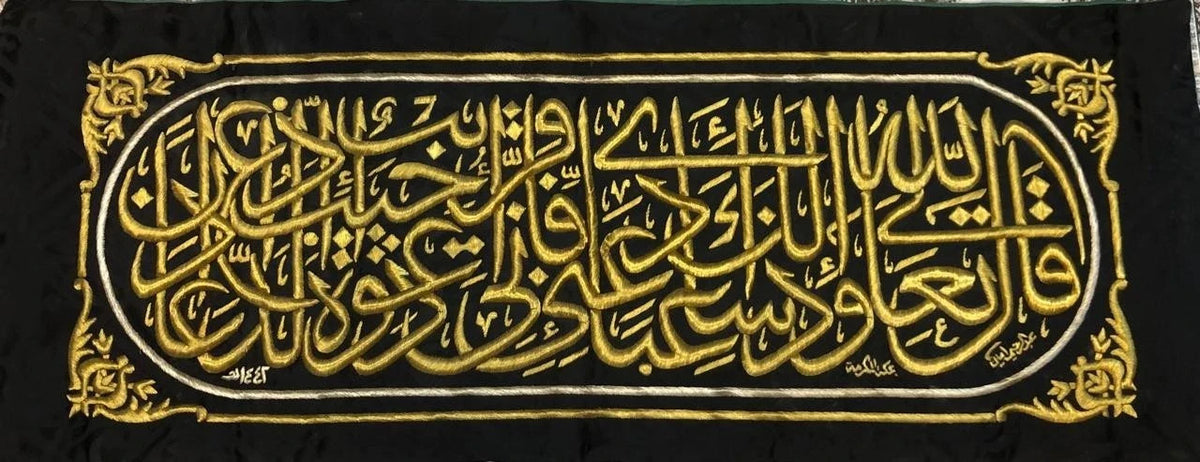 قال الله تعالى وإذا سألك عبادي عني فإني قريب أجيب دعوة الداع إذا دعان
بمكة المكرمة
١٤٤٢هـ